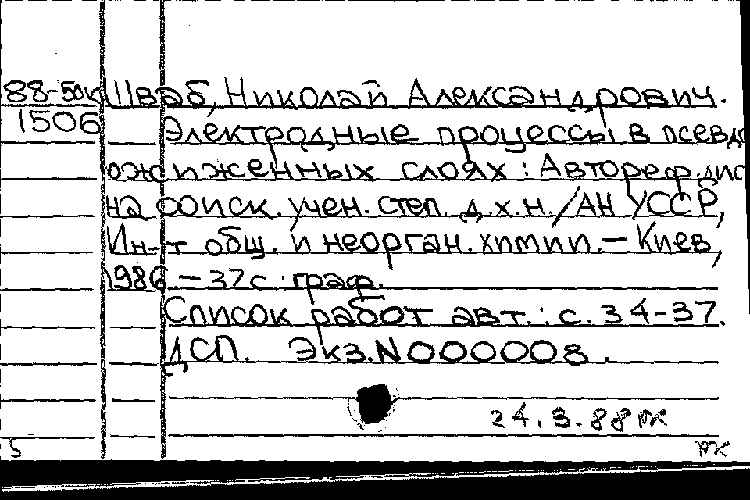 88-50к Шваб, Николай Александрович.
1506 Электродные процессы в псевдо
ожиженных слоях : Автореф. дис
на соиск. учен. степ. д.х.н. / АН УССР,
Ин-т общ. и неорган. химии. – Киев,
1986 – 37 с : граф.
Список работ авт.: с. 34-37.
ДСП. Экз. N000008.
24.3.88 РК
5 РК